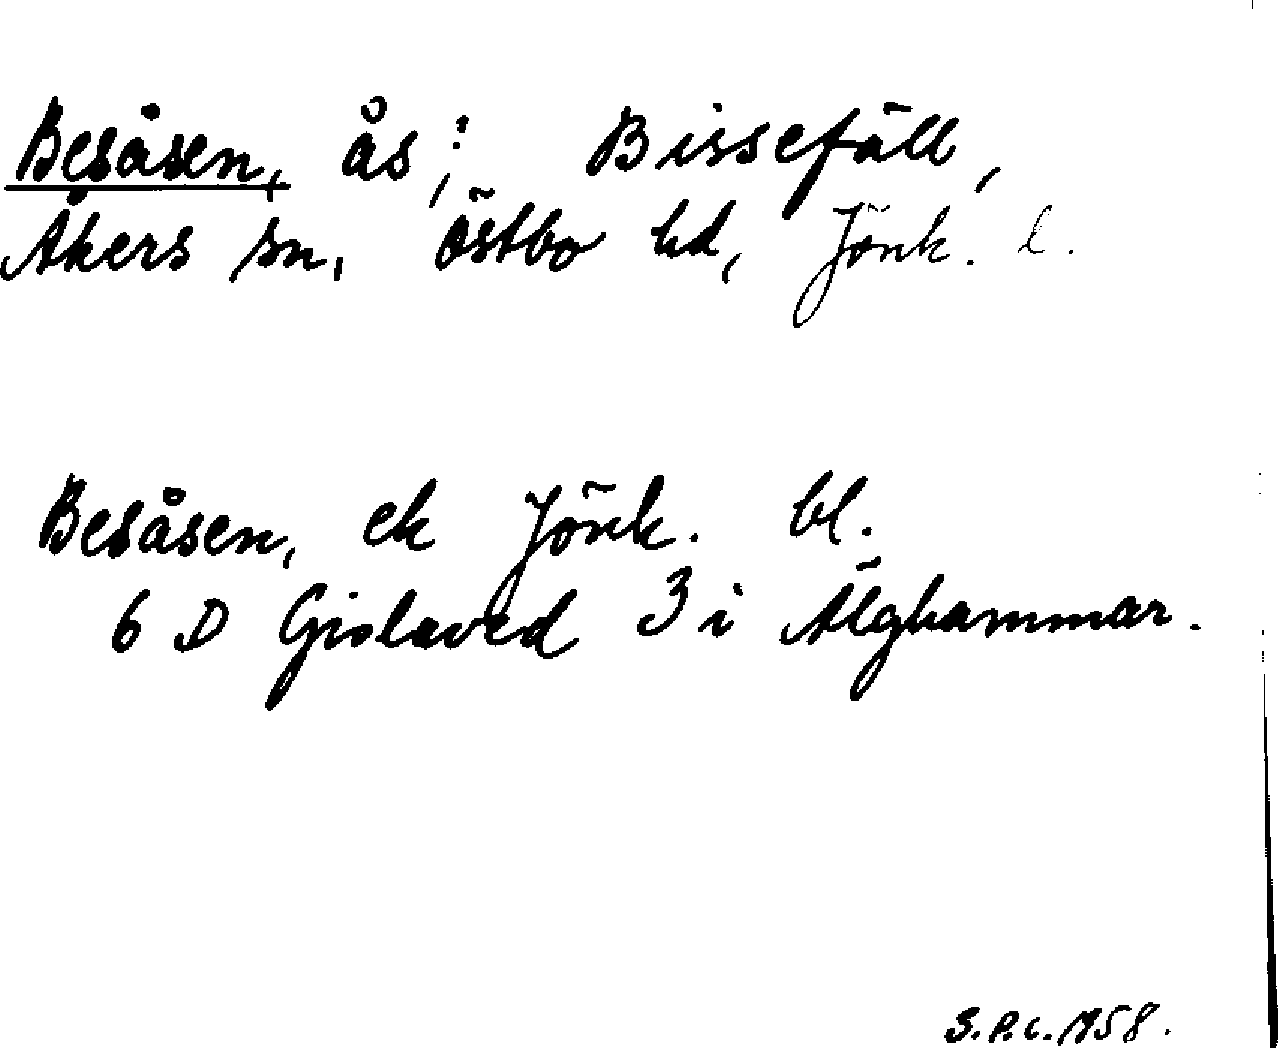 Besåsen, ås; Bissefäll,
Åkers sn, Östbo hd, Jönk. l.
Besåsen, ek Jönk. bl.
6 D Gislaved 3 i Älghammar.
S.P.C. 1958.